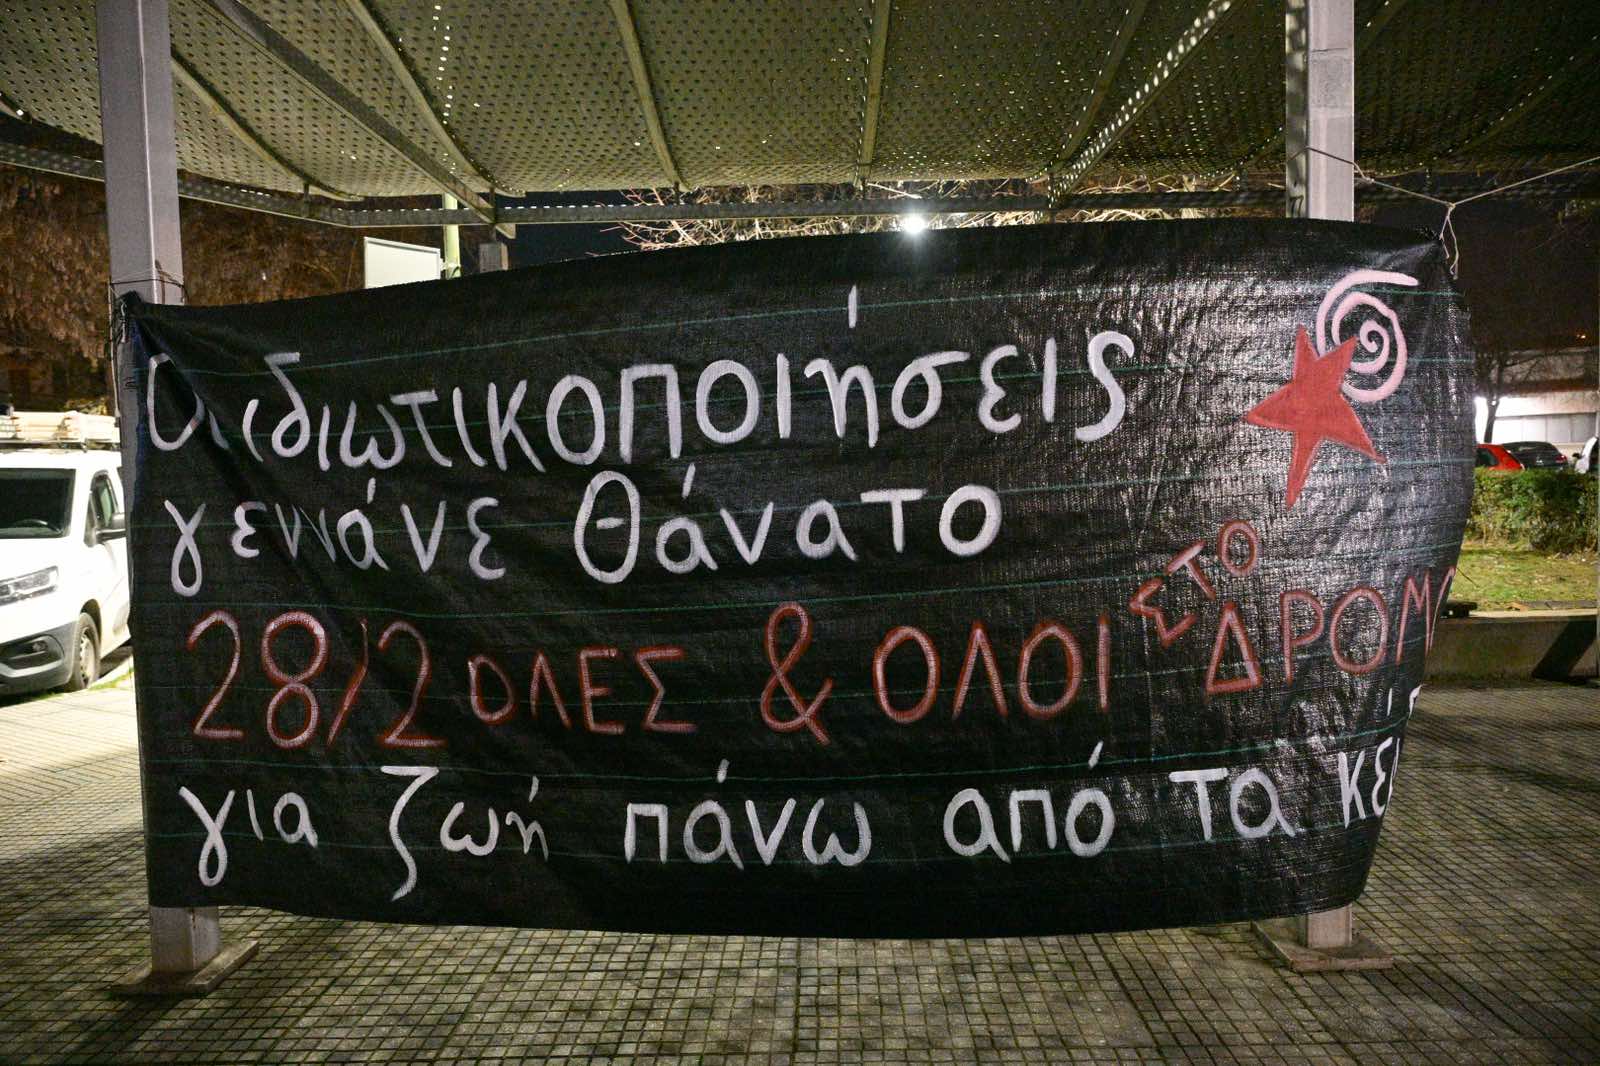 Οι ιδιωτικοποιήσεις
γεννάνε θάνατο
28/2 ΟΛΕΣ & ΟΛΟΙ ΣΤΟ
γιa ζωή πάνω από τα